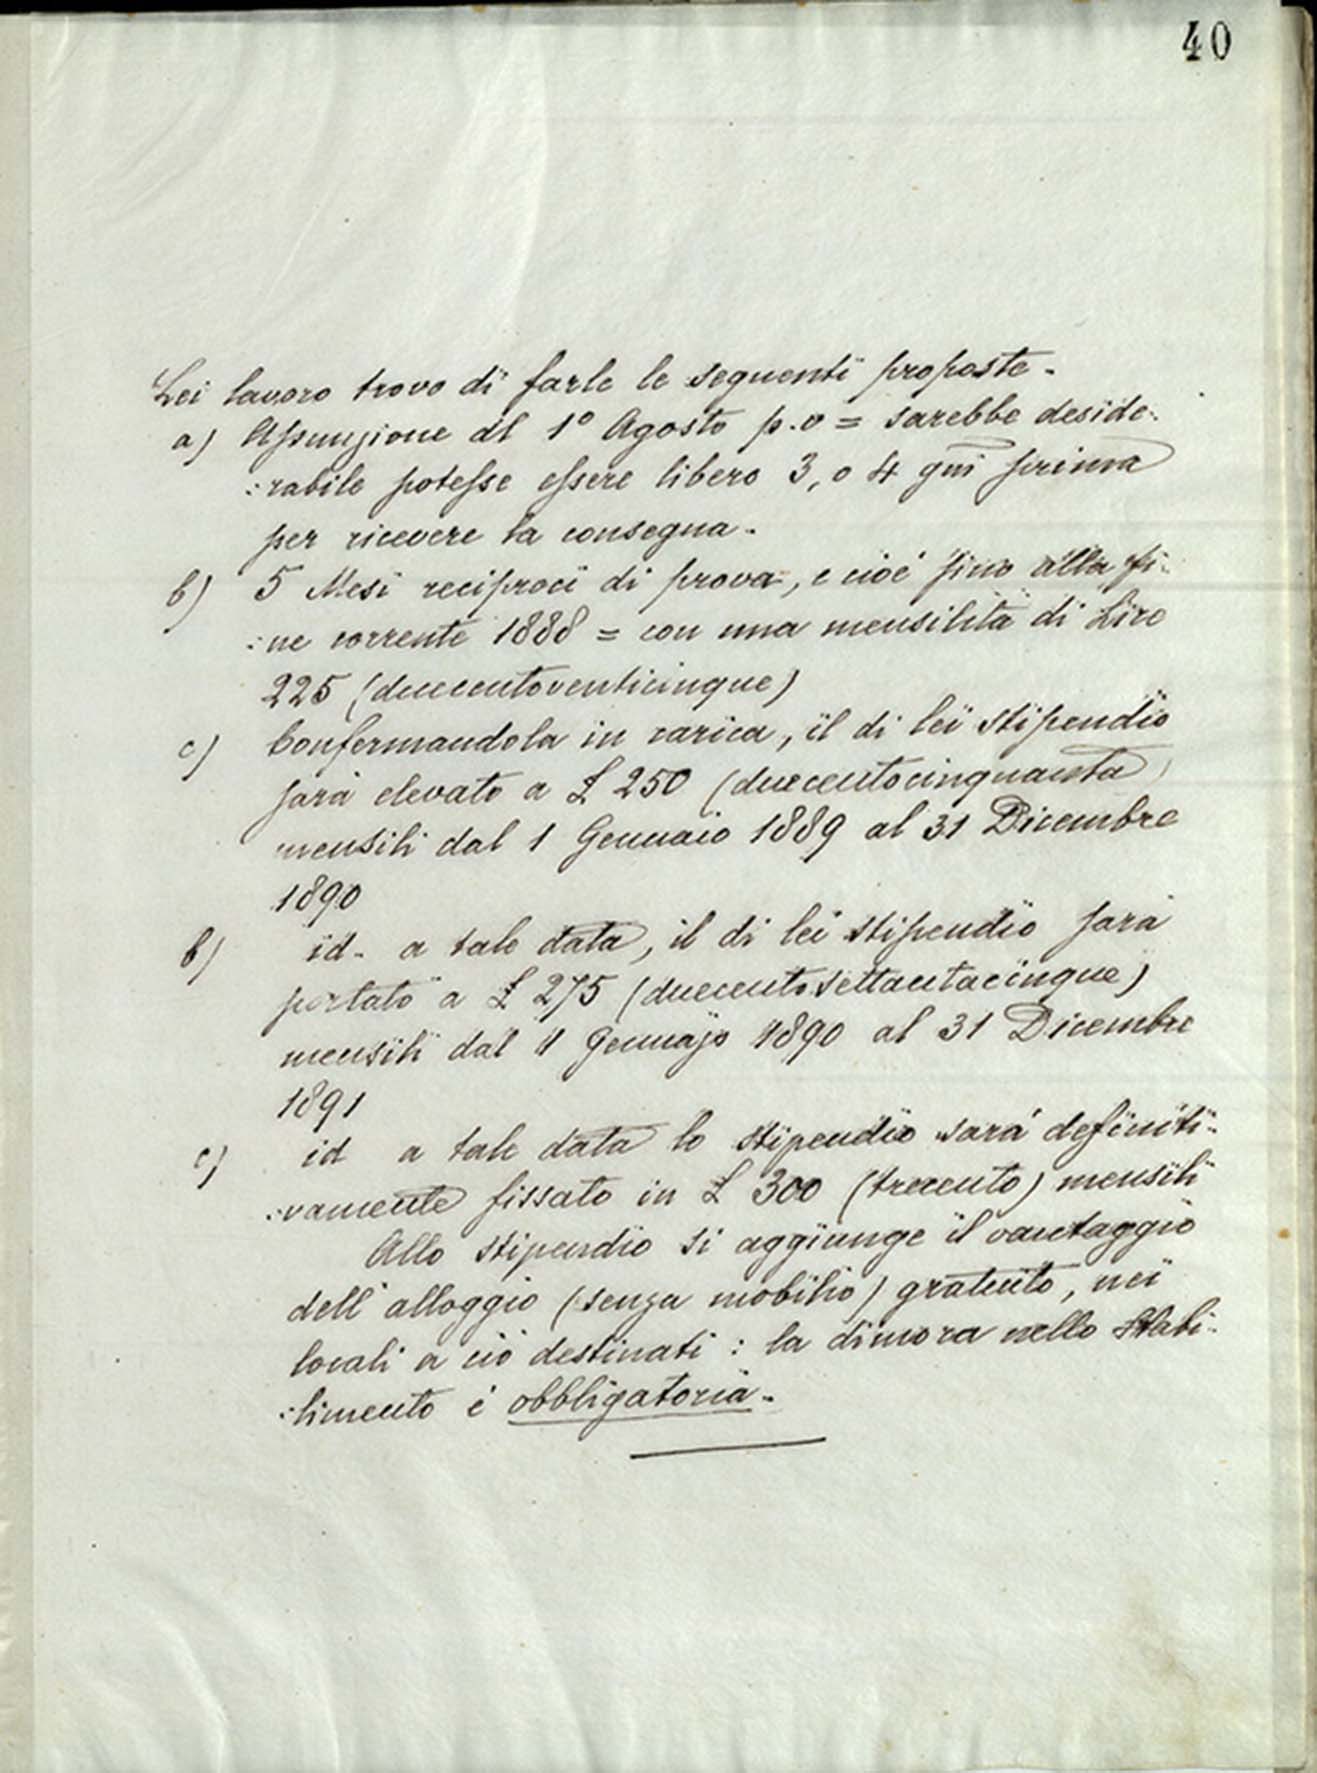 40
Lei lavoro trovo di farle le seguenti proposte -
a) Assunzione al 1° Agosto p. v = sarebbe deside:
:rabile potesse essere libero 3, o 4 gni prima
per ricevere la consegna -
b) 5 Mesi reciproci di prova, e cioé fino alla fi:
:ne corrente 1888 = con una mensilità di Lire
225 (duecentoventicinque)
c) Confermandola in carica, il di lei stipendio
sarà elevato a £ 250 (duecentocinquanta)
mensili dal 1 Gennaio 1889 al 31 Dicembre
1890
b) id - a tale data, il di lei stipendio sarà
portato a £ 275 (duecentosettantacinque)
mensili dal 1 Gennajo 1890 al 31 Dicembre
1891
c) id a tale data lo stipendio sará definiti:
:vamente fissato in £ 300 (trecento) mensili
Allo stipendio si aggiunge il vantaggio
dell'alloggio (senza mobilio) gratuito, nei
locali a ciò destinati : la dimora nello Stabi:
:limento é obbligatoria -